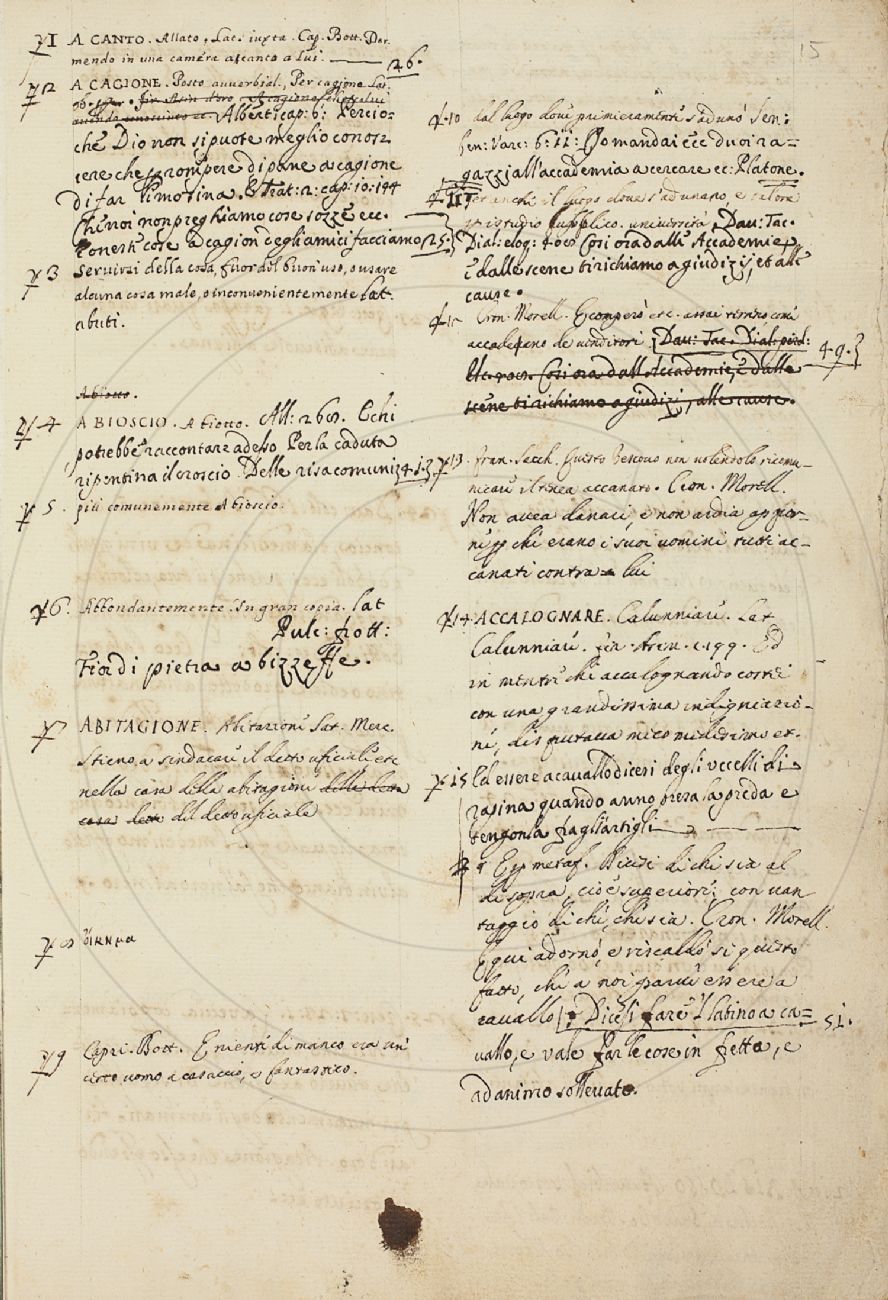 15
71 A CANTO. Allato, Lat. iuxta. Cap. Bott. Dor-
mendo in una camera accanto a lui. 26.
72 A CAGIONE. Posto avverbial., Per cagione Lat.
Albert: cap: 6: Percio-
che Dio non si puote meglio conos-
cere che rompere di pane a cagione
di far limosina. E Trat: 2: cap: 10: 194
Che noi non preghiamo cose sozze ecc.
l'oneste cose a cagion degli amici facciamo 25.
73 Servirsi della cosa, fuor del buon uso, o usare
alcuna cosa male, o inconvenientemente Lat.
abuti.
Abiotto.
74 A BIOSCIO. Abiotto. All: 268. Echi
potrebbe raccontare adesso Per la caduta
repentina il croscio Delle risa comuni 4.3.
75. più comunemente A bioscio.
76. Abbondantemente. In gran copia. Lat
Pulc: frott:
Tra di pietra a bizzeffe.
7 ABITAGIONE. Abitazione Lat.
Stieno a sindacare il detto uficiale etc
nella casa della abitagione della detta
casa detto del detto uficiale
78
79 Capr. Bott. E niente di manco era un
certo uomo a casaccio, e fantastico.
7.10 dal luogo dove primieramente s'adunò Sen:
ben: Varc: 6: 11: Io mandai ecc duoi ra=
gazzi all'accademia a cercare ec: Platone.
7.11 per anche il luogo dove s'adunano, e
studio pubblico. università. Dav: Tac:
Dial: eloq: 408 Così ora dalle Accademie,
e dalle scene ti richiamo a giudizi, et alle
cause.
7.12 Cron. Morell. E comperò etc. assai terreno come
accadevano de venditori. Dav: Tac. Dial: perd:
Eloq: 408. Così ora dall Accademie, e dalle
scene ti richiamo a giudizi, alle cause. 49.
7.13. Fran. Sacch. Questo Vescovo non volendolo ricomu-
nicare il tenea accanato. Cron. Morell.
Non avea danari, e non ardia appor-
ne perchè erano i suoi uomini tutti ac-
canati contra lui
7.14 ACCALOGNARE. Calunniare. Lat
Calunniare. Fr. 199. Ed
in mentre che accalognando costei
con una grandissima indignazio-
ne, disputava meco medesimo etc.
7.15 Ed essere a cavallo dicesi degli uccelli di
rapina quando anno presa la preda e
tengonla fra gli artigli
E per metaf. Dicesi di chi sia al
di sopra, cioè superiore; con van
taggio di chi che sia. Cron. Morell.
E qui adornò, e riscaldò sì questo
fatto, che a noi parve essere a
cavallo Dicesi fare 'l latino a ca= 51.
vallo, e vale far le cose in fretta, e
ad animo sollevato.